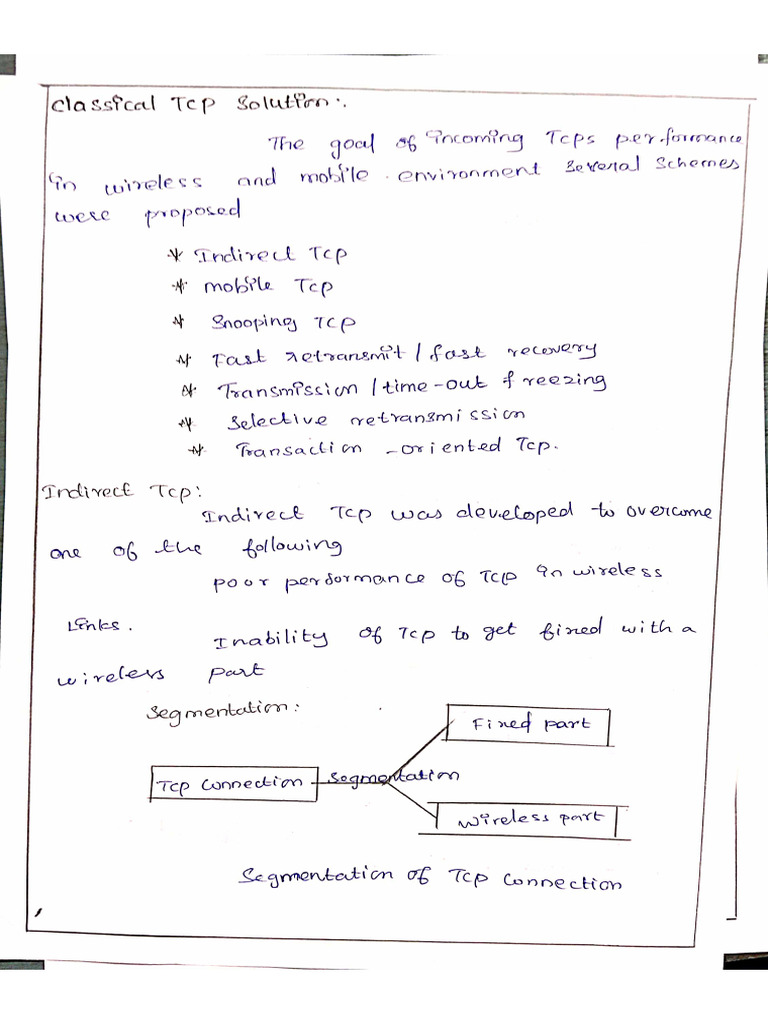 Classical Tcp Solution:.
The goal of incoming Tcps performance
in wireless and mobile environment several schemes
were proposed
* Indirect Tcp
* mobile Tcp
* Snooping Tcp
* Fast retransmit / fast recovery
* Transmission / time-out freezing
* Selective retransmission
* Transaction -oriented Tcp.
Indirect Tcp:
Indirect Tcp was developed to overcome
one of the following
poor performance of Tcp in wireless
Links.
Inability of Tcp to get fixed with a
wireless part
Segmentation:
Fixed part
Tcp connection
Segmentation
Wireless part
Segmentation of Tcp connection